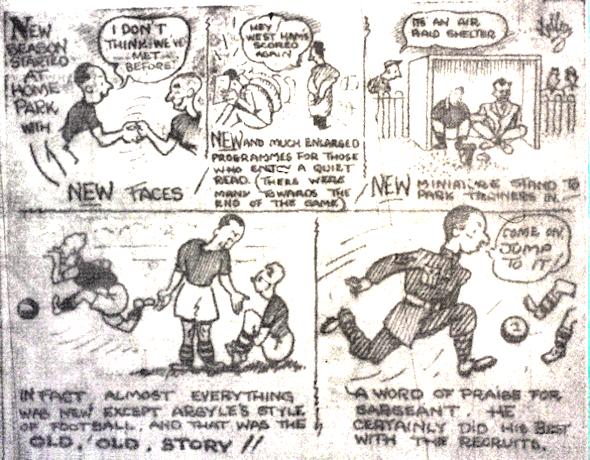 NEW
SEASON
STARTED
AT
HOME
PARK
WITH
NEW FACES
I DON'T
THINK WE'VE
MET
BEFORE
HEY!
WEST HAM'S
SCORED
AGAIN
NEW AND MUCH ENLARGED
PROGRAMMES FOR THOSE
WHO ENJOY A QUIET
READ. (THERE WERE
MANY TOWARDS THE
END OF THE GAME)
IT'S AN AIR
RAID SHELTER
NEW MINIATURE STAND TO
PARK TRAINERS IN.
IN FACT ALMOST EVERYTHING
WAS NEW EXCEPT ARGYLE'S STYLE
OF FOOTBALL. AND THAT WAS THE
OLD, OLD, STORY!!
COME ON
JUMP
TO IT!
A WORD OF PRAISE FOR
SARGEANT. HE
CERTAINLY DID HIS BEST
WITH THE RECRUITS.